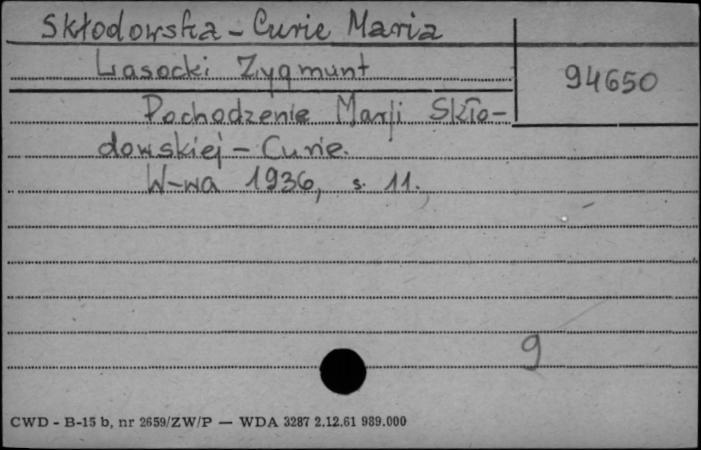 Skłodowska - Curie Maria
Lasocki Zygmunt
94650
Pochodzenie Marji Skło-
dowskiej - Curie.
W-wa 1936, s. 11.
9
CWD - B-15 b, nr 2659/ZW/P — WDA 3287 2.12.61 989.000